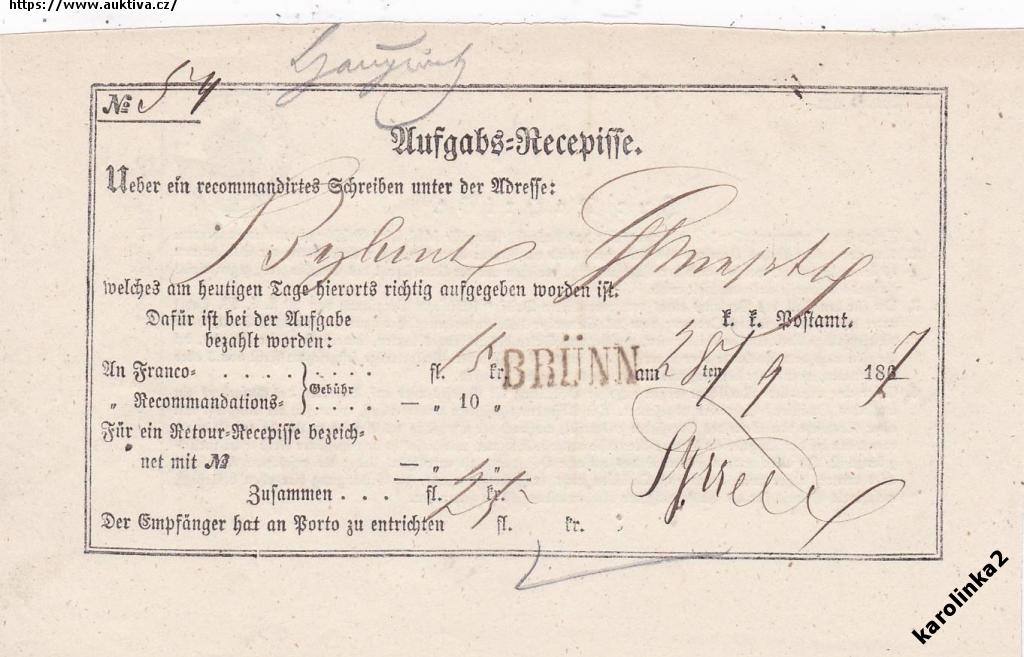 https://www.auktiva.cz/
№ 54
Aufgabs-Recepisse.
Ueber ein recommandirtes Schreiben unter der Adresse:
welches am heutigen Tage hierorts richtig aufgegeben worden ist.
Dafür ist bei der Aufgabe k. k. Postamt.
bezahlt worden:
An Franco- . . . . . . . . . fl. 15 kr. BRÜNN am 28 ten 9 186
„ Recommandations- Gebühr . . . . — „ 10 „
Für ein Retour-Recepisse bezeich-
net mit № — „ „
Zusammen . . . fl. 25 kr.
Der Empfänger hat an Porto zu entrichten fl. kr.
karolinka2